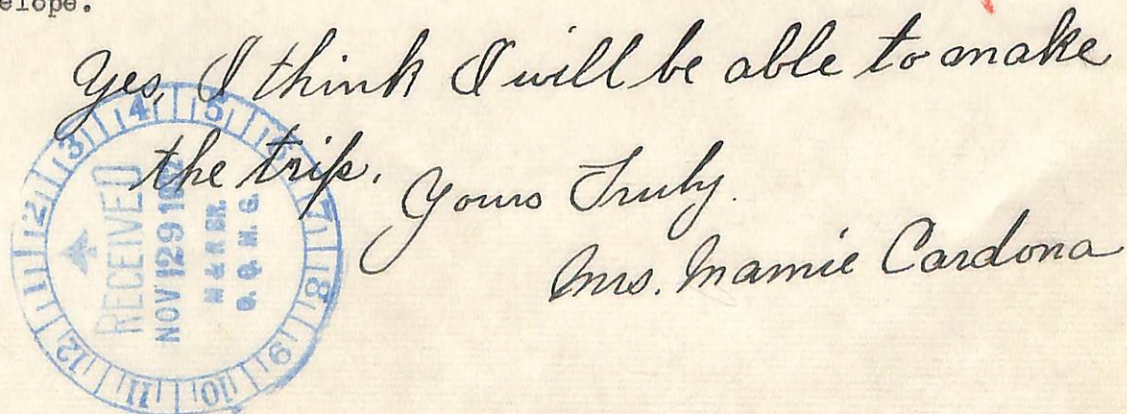 elope.
Yes, I think I will be able to make
the trip.
Yours Truly.
Mrs. Mamie Cardona
RECEIVED
NOV 29
M & R BR.
O. Q. M. G.
1 2 3 4 5 6 7 8 9 10 11 12